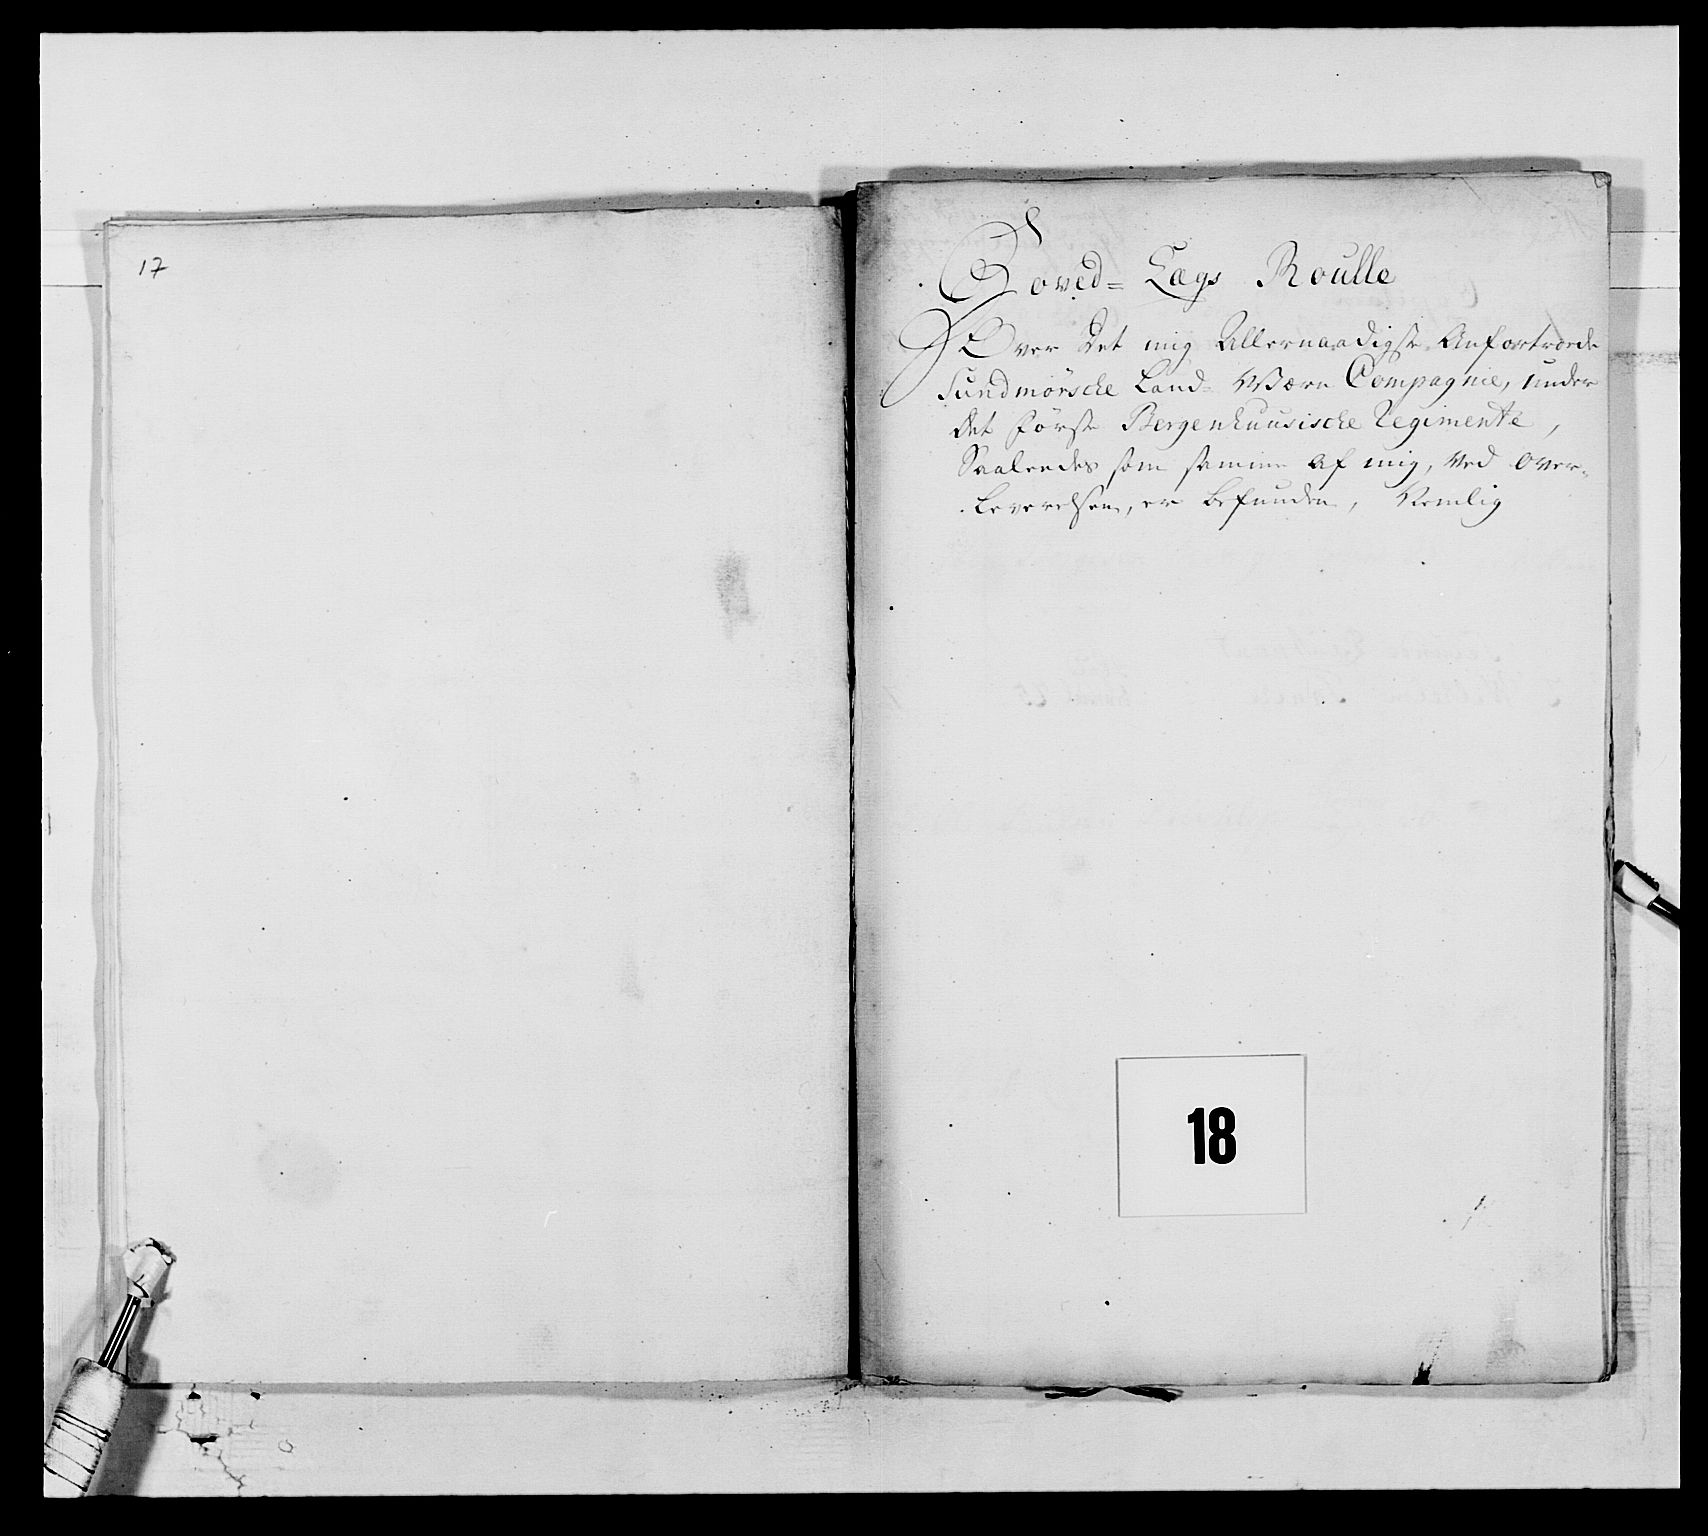 17
Hoved= Lægs Roulle
Over det mig Allernaadigst Anfortroede
Sundmörsche Land-Værn Compagnie, under
det første Bergenhuusische Regimente,
Saaledes som samme af mig, ved Over=
leverelsen, er befunden, Nemlig
18